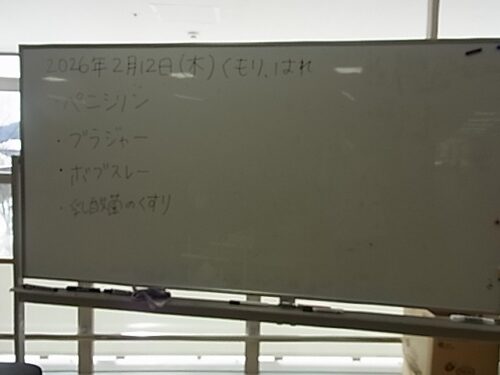 2026年2月12日(木)くもり、はれ
・ペニシリン
・ブラジャー
・ボブスレー
・乳酸菌のくすり